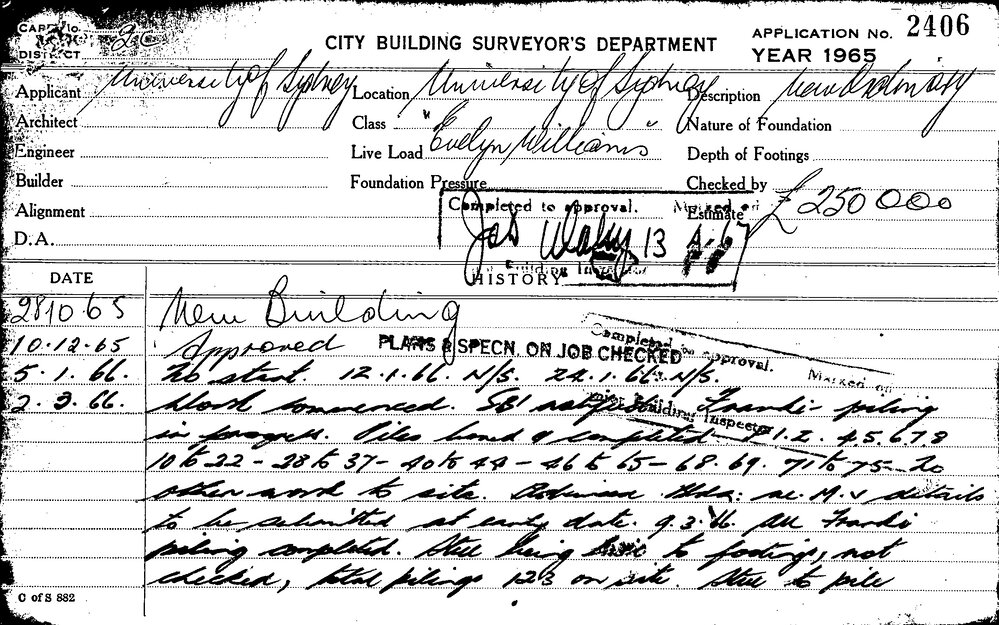 2C
CITY BUILDING SURVEYOR'S DEPARTMENT
APPLICATION No. 2406
YEAR 1965
Applicant University of Sydney Location University of Sydney Description New
Architect Class Nature of Foundation
Engineer Live Load "Evelyn Williams" Depth of Footings
Builder Foundation Pressure Checked by
Alignment Estimate £250000
D.A.
Completed to approval. Marked on
13 4.67
Building Inspector
HISTORY
DATE
28 10 65 New Building
10.12.65 Approved PLANS & SPECN. ON JOB CHECKED
Completed to approval. Marked on
Building Inspector
5.1.66. No start. 12.1.66. N/S. 24.1.66. N/S.
2.3.66. Work commenced. SBI Franki piling
in progress. Piles bored & completed 1.2.4.5.6.7.8
10 to 22 - 28 to 37 - 40 to 44 - 46 to 65 - 68.69. 71 to 75 No
other work to site. details
to be submitted at early date. 9.3.66. All Franki
piling completed. Steel being to footings, not
checked, total pilings 123 on site. Steel to pile
C of S 882